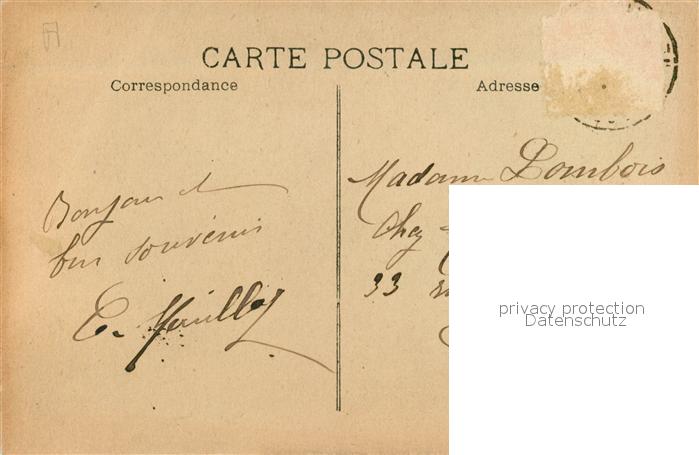 CARTE POSTALE
Correspondance
Adresse
Bonjour et
bon souvenir
Madame Lombois
Chez
33
privacy protection
Datenschutz